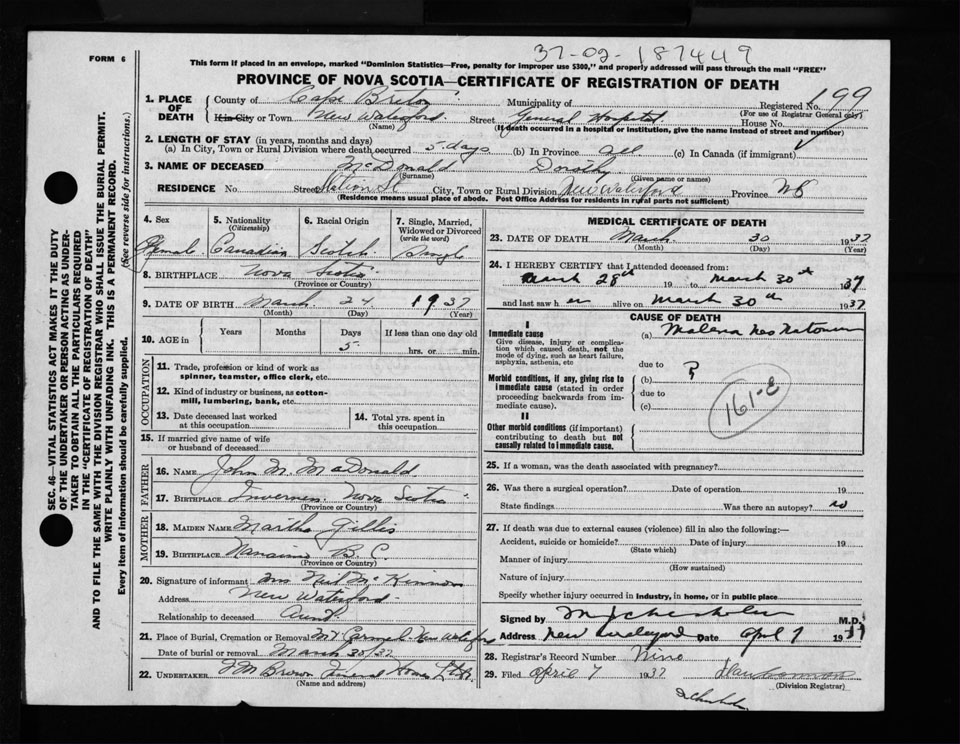 37-02-187449
FORM 6
This form if placed in an envelope, marked "Dominion Statistics—Free, penalty for improper use $300," and properly addressed will pass through the mail "FREE"
PROVINCE OF NOVA SCOTIA—CERTIFICATE OF REGISTRATION OF DEATH
1. PLACE OF DEATH County of Cape Breton Municipality of Registered No. 199
(For use of Registrar General only)
If in City or Town New Waterford Street General Hospital House No.
(Name) (If death occurred in a hospital or institution, give the name instead of street and number)
2. LENGTH OF STAY (in years, months and days)
(a) In City, Town or Rural Division where death occurred 5 days (b) In Province all (c) In Canada (if immigrant)
3. NAME OF DECEASED McDonald Dorothy
(Surname) (Given name or names)
RESIDENCE No. Street Station St City, Town or Rural Division New Waterford Province
(Residence means usual place of abode. Post Office Address for residents in rural parts not sufficient)
4. Sex 5. Nationality (Citizenship) 6. Racial Origin 7. Single, Married, Widowed or Divorced (write the word)
Female Canadian Scotch Single
8. BIRTHPLACE Nova Scotia
(Province or Country)
9. DATE OF BIRTH March 24 1937
(Month) (Day) (Year)
10. AGE in Years Months Days If less than one day old
5 hrs. or min.
OCCUPATION
11. Trade, profession or kind of work as spinner, teamster, office clerk, etc.
12. Kind of industry or business, as cotton-mill, lumbering, bank, etc.
13. Date deceased last worked at this occupation
14. Total yrs. spent in this occupation
15. If married give name of wife or husband of deceased
FATHER
16. NAME John M. MacDonald
17. BIRTHPLACE Inverness Nova Scotia
(Province or Country)
MOTHER
18. MAIDEN NAME Martha Gillis
19. BIRTHPLACE Nanaimo B.C.
(Province or Country)
20. Signature of informant Mrs Neil McKinnon
Address New Waterford
Relationship to deceased Aunt
21. Place of Burial, Cremation or Removal Mt Carmel New Waterford
Date of burial or removal March 30/37
22. UNDERTAKER Brown Funeral Home
(Name and address)
MEDICAL CERTIFICATE OF DEATH
23. DATE OF DEATH March 30 1937
(Month) (Day) (Year)
24. I HEREBY CERTIFY that I attended deceased from:
March 28th 19 to March 30th 1937
and last saw h er alive on March 30th 1937
CAUSE OF DEATH
I
Immediate cause
Give disease, injury or complication which caused death, not the mode of dying, such as heart failure, asphyxia, asthenia, etc
(a) Melena Neonatorum
due to
Morbid conditions, if any, giving rise to immediate cause (stated in order proceeding backwards from immediate cause).
(b) ?
due to
(c)
161-E
II
Other morbid conditions (if important) contributing to death but not causally related to immediate cause.
25. If a woman, was the death associated with pregnancy?
26. Was there a surgical operation? Date of operation 19
State findings Was there an autopsy? no
27. If death was due to external causes (violence) fill in also the following:—
Accident, suicide or homicide? Date of injury 19
(State which)
Manner of injury
(How sustained)
Nature of injury
Specify whether injury occurred in industry, in home, or in public place
Signed by M.D.
Address New Date April 7 1937
28. Registrar's Record Number Nine
29. Filed April 7 1937
(Division Registrar)
SEC. 46—VITAL STATISTICS ACT MAKES IT THE DUTY
OF THE UNDERTAKER OR PERSON ACTING AS UNDER-
TAKER TO OBTAIN ALL THE PARTICULARS REQUIRED
IN THE "CERTIFICATE OF REGISTRATION OF DEATH"
AND TO FILE THE SAME WITH THE DIVISION REGISTRAR WHO SHALL ISSUE THE BURIAL PERMIT.
WRITE PLAINLY WITH UNFADING INK. THIS IS A PERMANENT RECORD.
Every item of information should be carefully supplied. (See reverse side for instructions.)